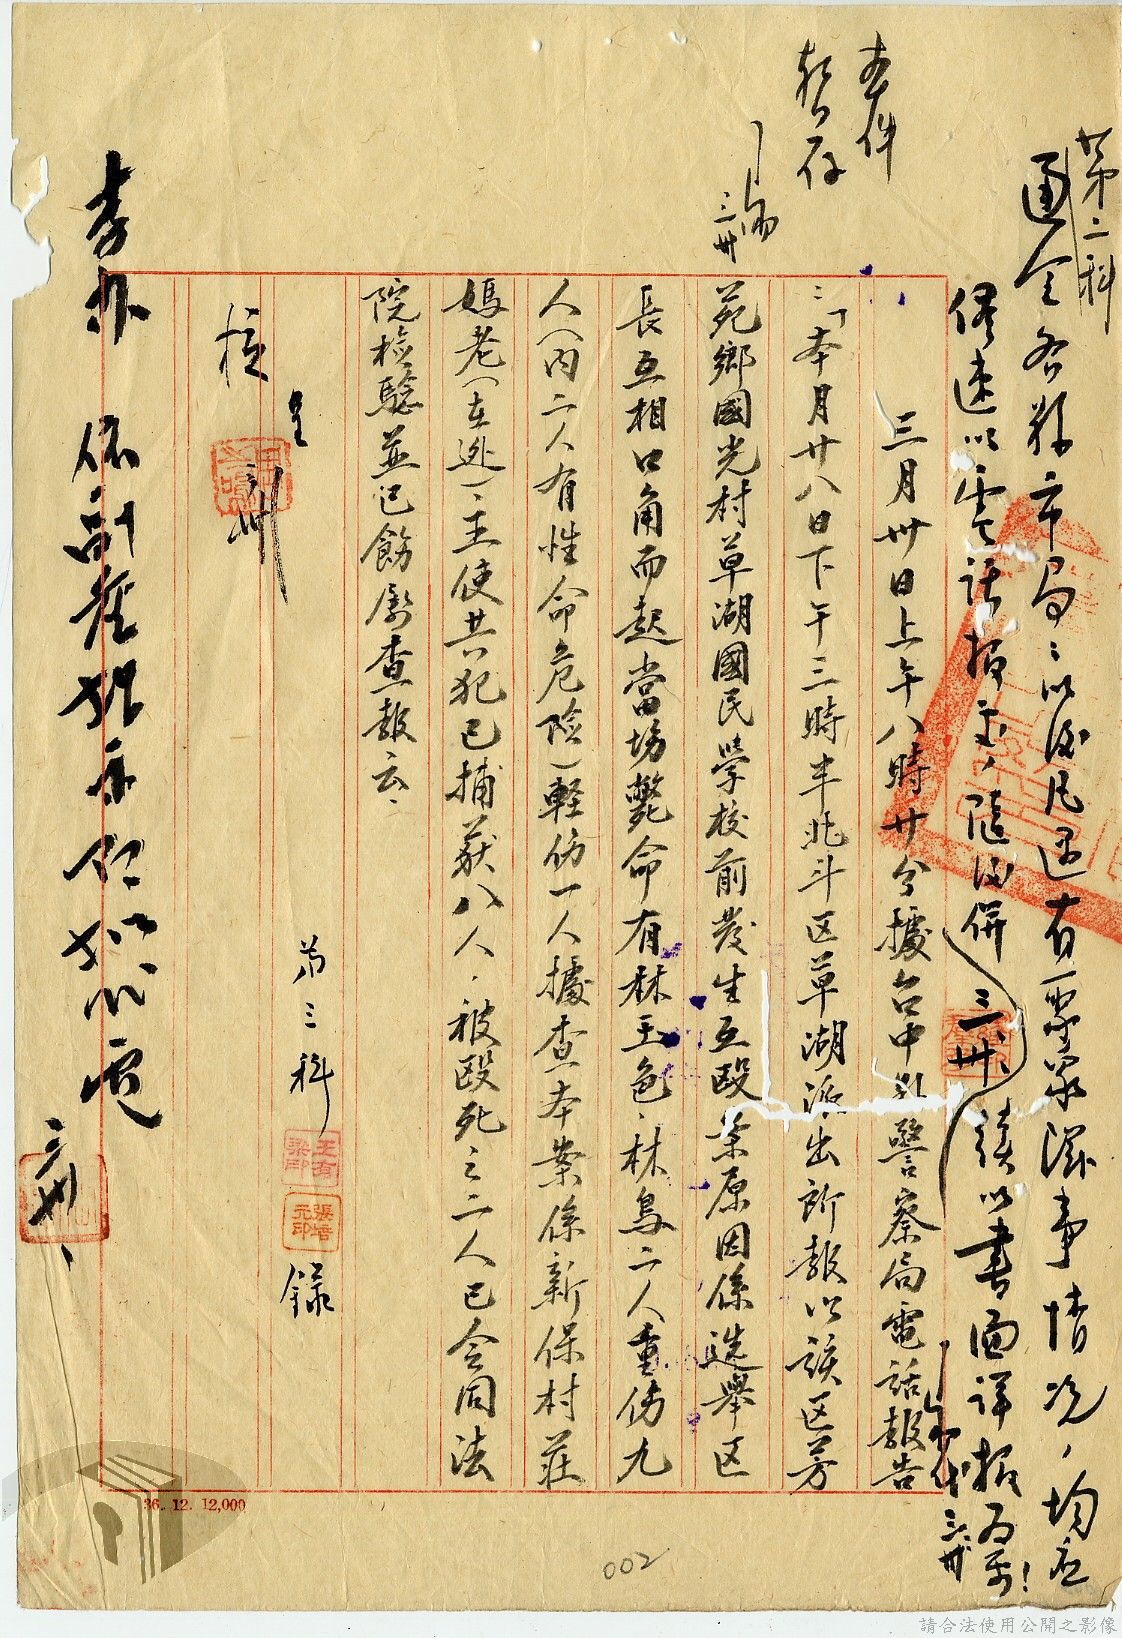 第二科
通令各縣市局：以後凡遇有聚眾滋事情況，均应
儘速以電話報主，隨後併
續以書面詳報為要！
三卅
本件
暫存
三卅
三月卅日上午八時廿分據台中縣警察局電話報告
：「本月廿八日下午三時半北斗区草湖派出所報以該区芳
苑鄉國光村草湖國民學校前發生互毆案原因係選舉区
長互相口角而起當場斃命有林玉色、林鳥二人重傷九
人（內二人有性命危險）輕傷一人據查本案係新保村莊
媽老（在逃）主使共犯已捕获八人，被毆死之二人已会同法
院檢驗並已飭嚴查報云、
第三科
王有梁印
張培元印
錄
呈
核
三卅
36. 12. 12,000
002
請合法使用公開之影像